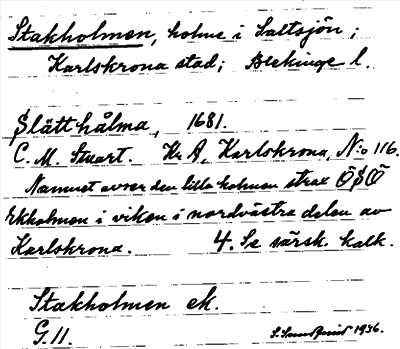 Stakholmen, holme i Saltsjön;
Karlskrona stad; Blekinge l.
Slätthålma, 1681.
C. M. Stuart. Kr A, Karlskrona, N:o 116.
Namnet avser den lilla holmen strax ÖSÖ
Ekholmen i viken i nordvästra delen av
Karlskrona. 4. Se särsk. kalk.
Stakholmen ek.
G. 11. 1936.